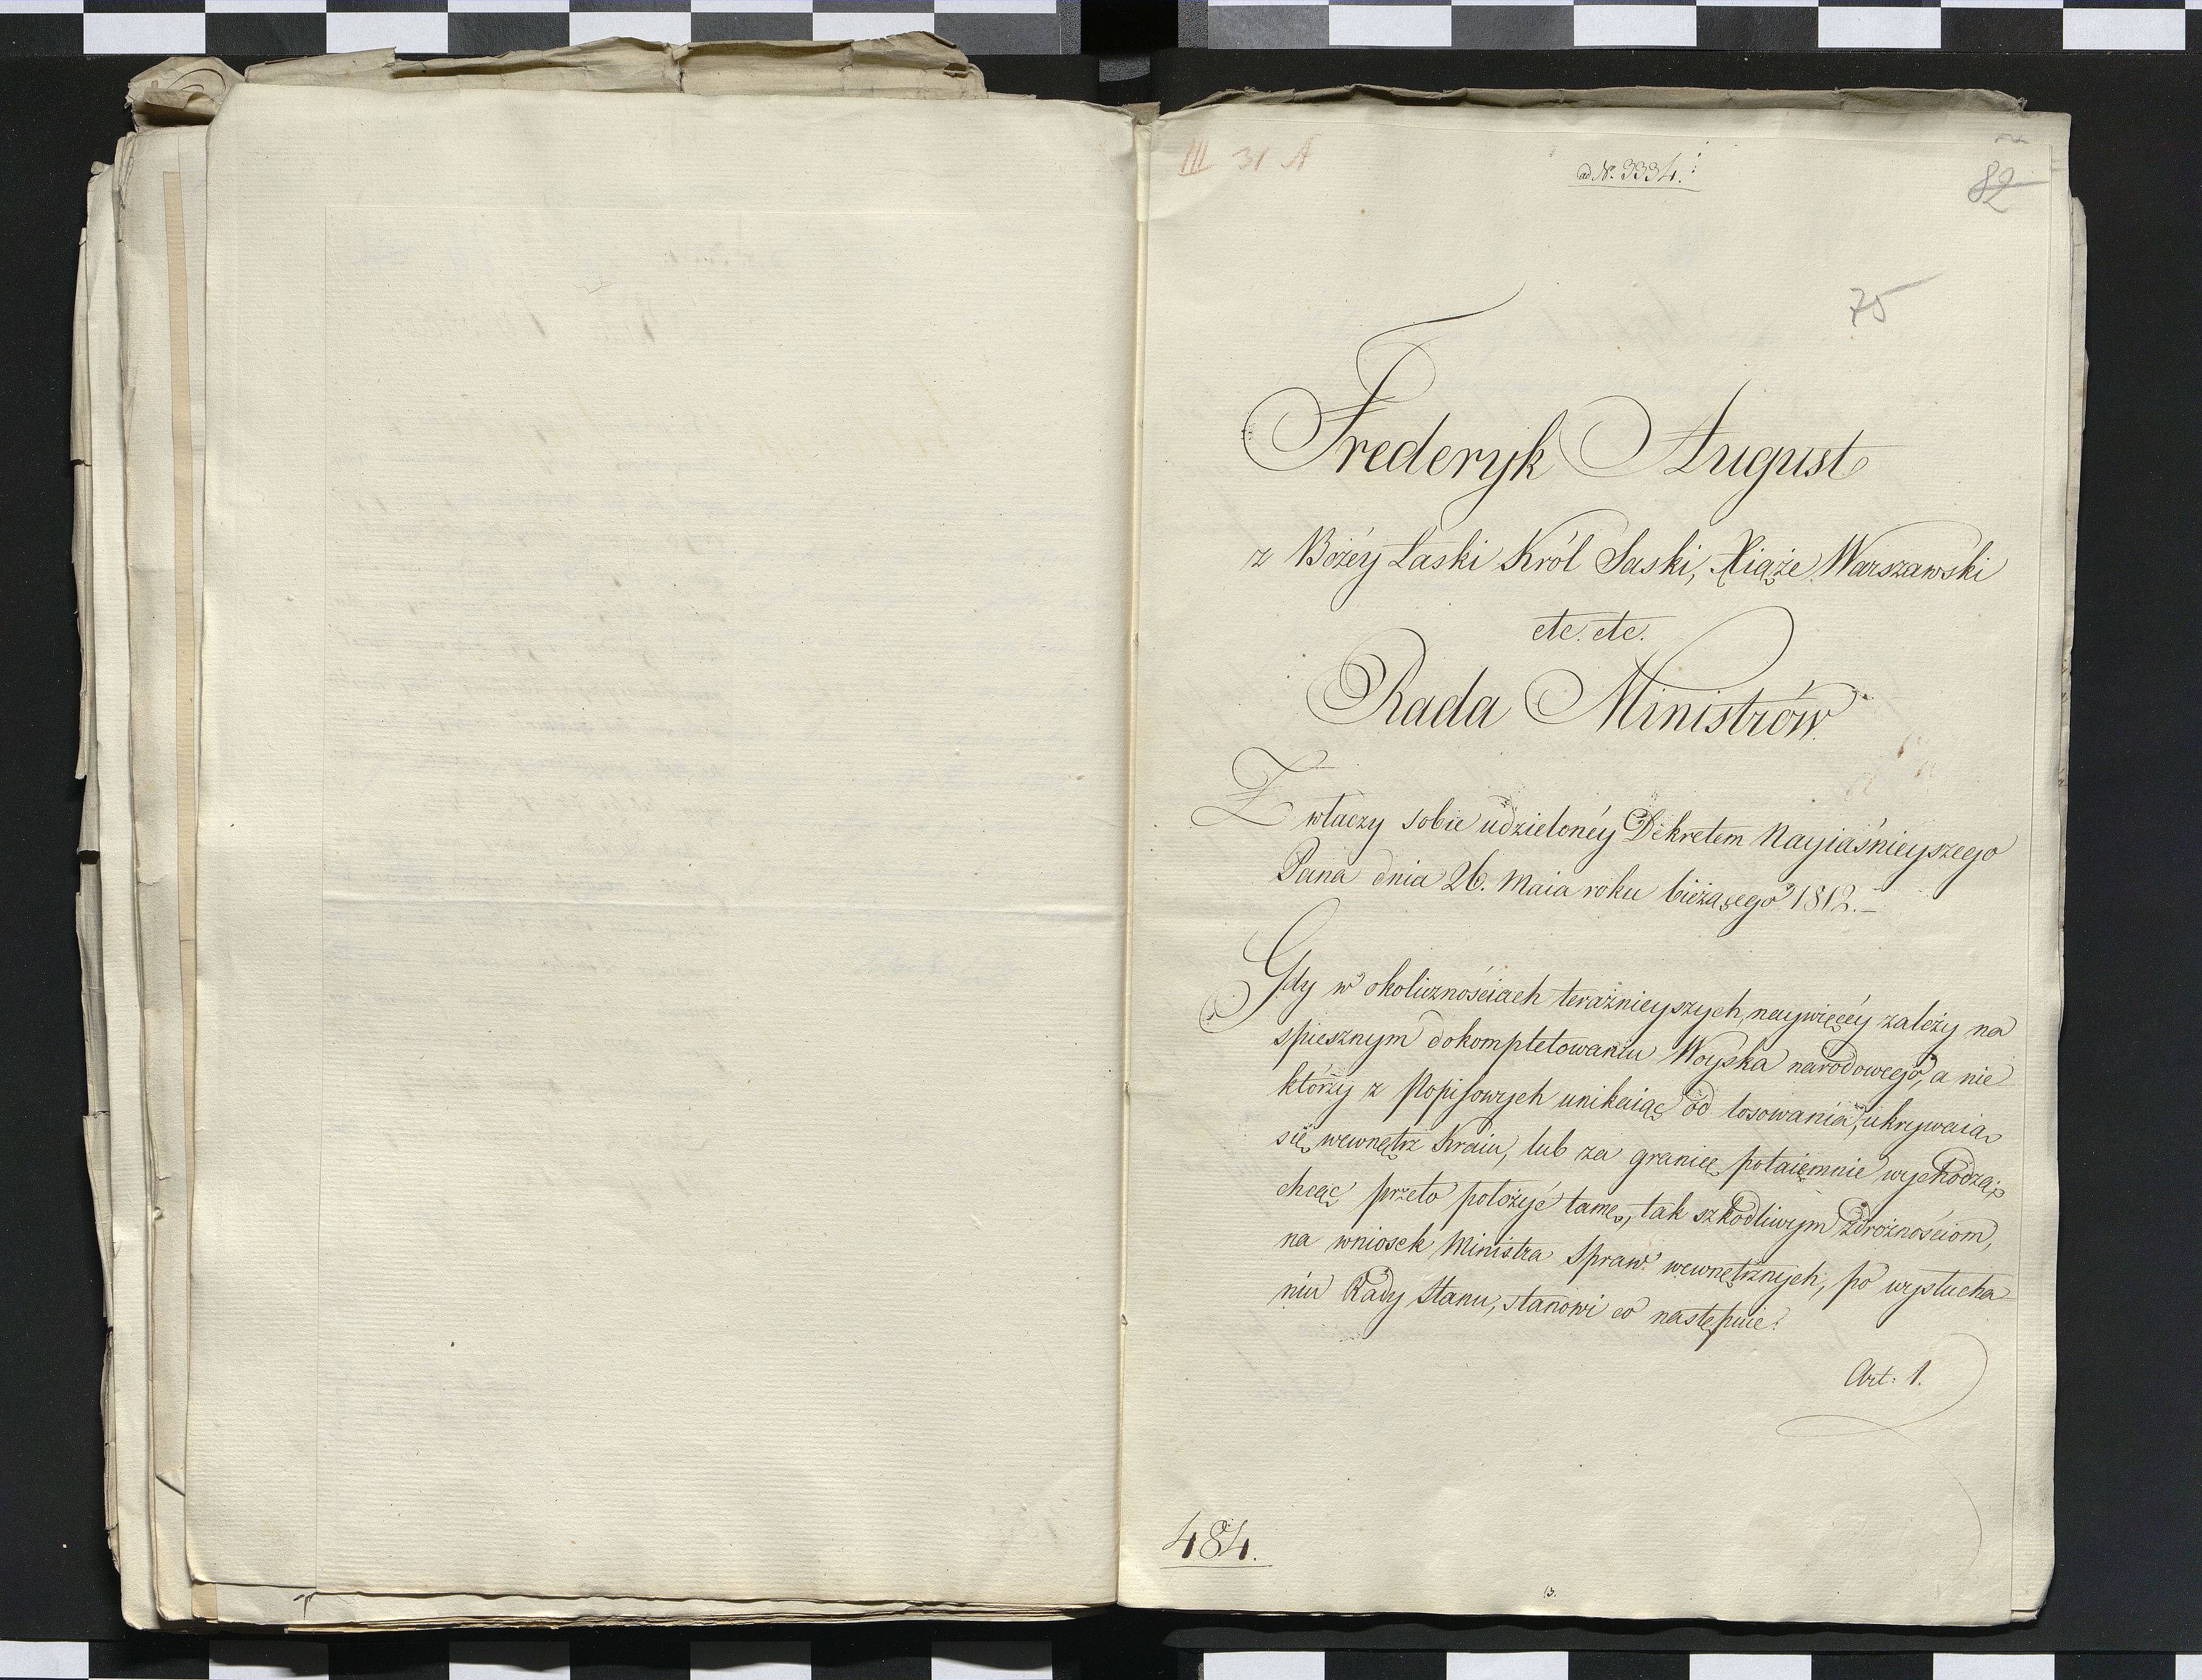 III 31 A
ad N. 3334.
82
75
Frederyk August
z Bożéy Łaski Król Saski, Xiąże Warszawski
etc. etc.
Rada Ministrów.
Z władzy sobie udzielonéy Dekretem Nayiaśnieyszego
Pana dnia 26. Maia roku bieżącego 1812. –
Gdy w okolicznościach teraźnieyszych, naywięcéy zależy na
spiesznym dokompletowaniu Woyska narodowego, a nie
którzy z Popisowych unikaiąc od losowania, ukrywaią
się wewnątrz Kraiu, lub za granicę potaiemnie wychodzą;
chcąc przeto położyć tamę, tak szkodliwym zdrożnościom,
na wniosek Ministra Spraw wewnętrznych, po wysłucha
niu Rady Stanu, stanowi co następuie:
Art: 1.
484.
13.